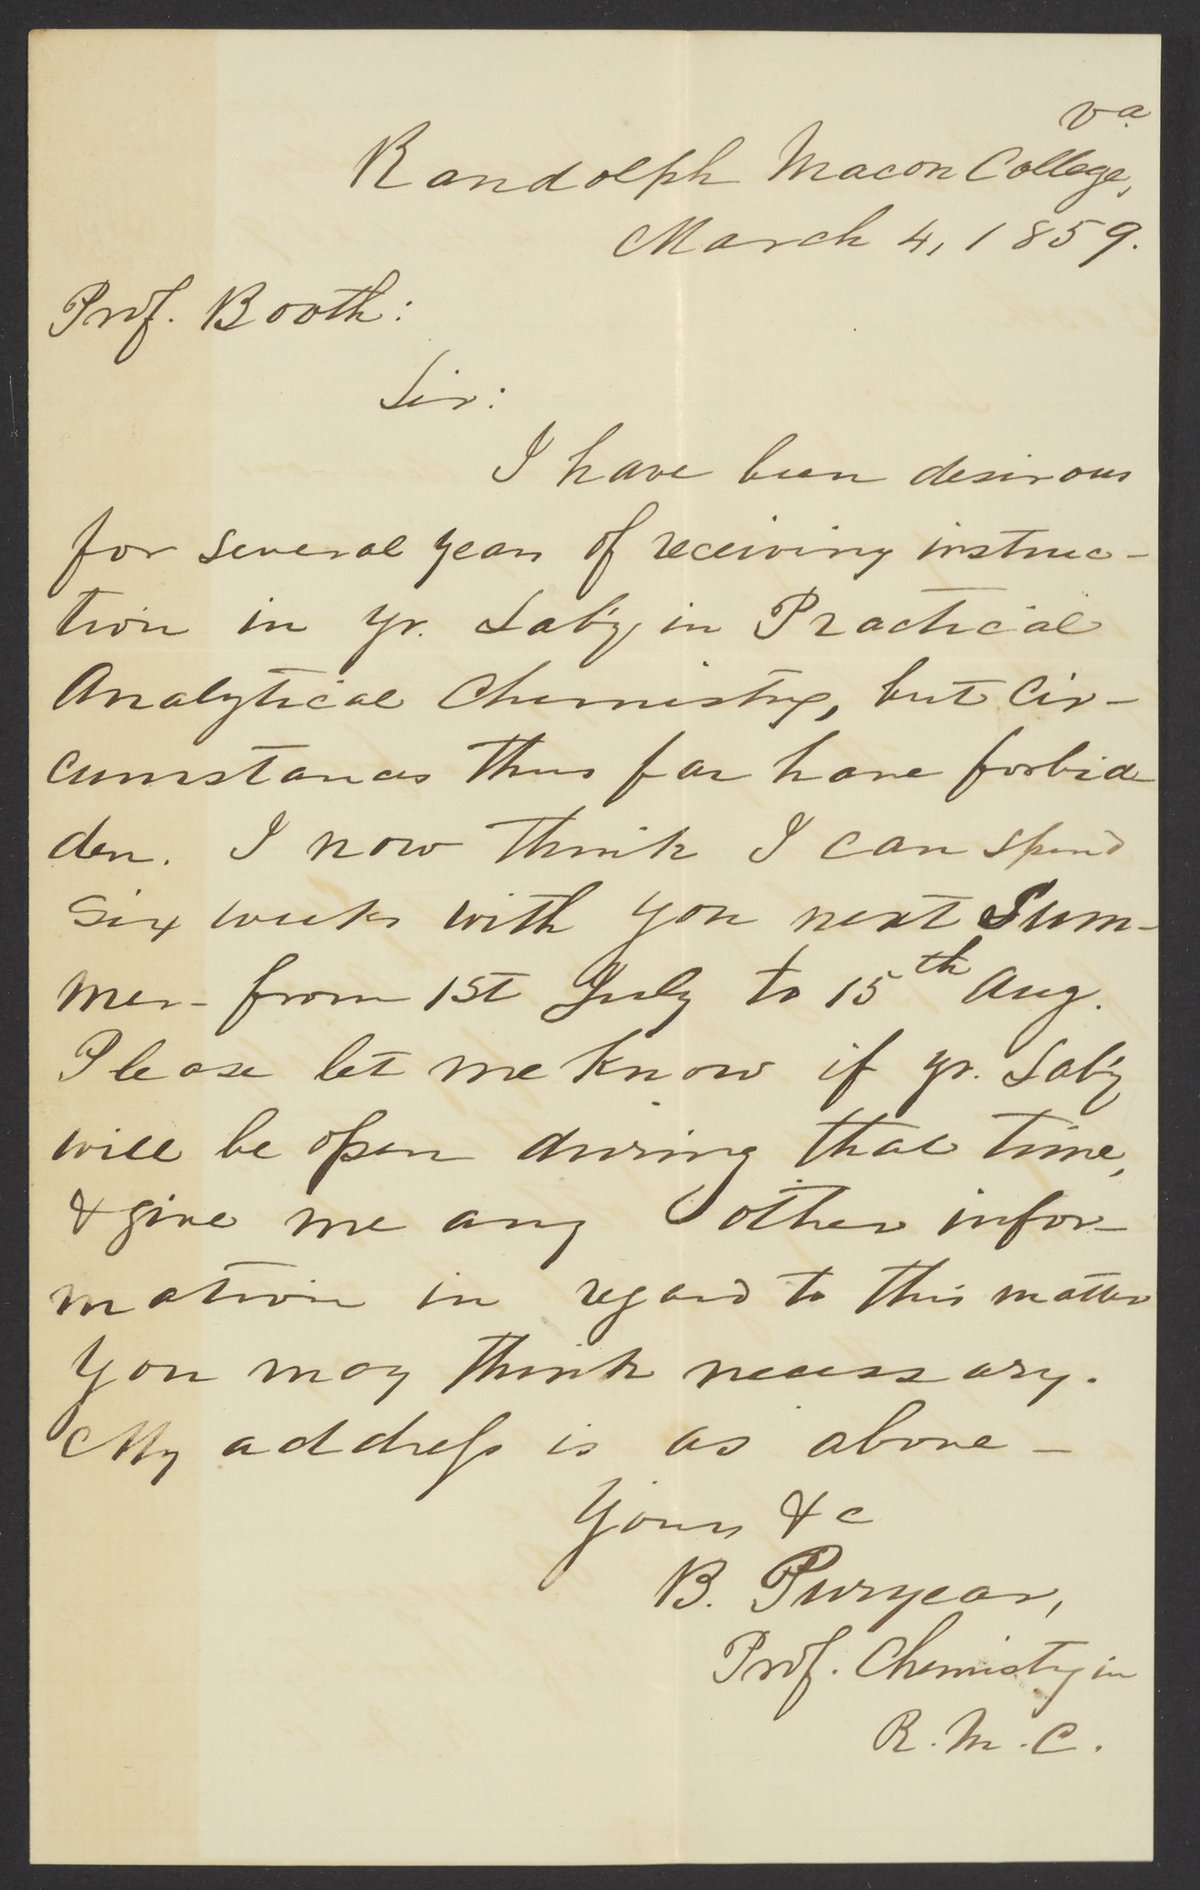 Va
Randolph Macon College,
March 4, 1859.
Prof. Booth:
Sir:
I have been desirous
for several years of receiving instruc-
tion in yr. Lab'y in Practical
Analytical Chemistry, but Cir-
cumstances thus far have forbid-
den. I now think I can spend
six weeks with you next Sum-
mer - from 1st July to 15th Aug.
Please let me know if yr. Lab'y
will be open during that time,
& give me any other infor-
mation in regard to this matter
you may think necessary.
My address is as above -
Yours &c
B. Puryear,
Prof. Chemisty in
R. M. C.